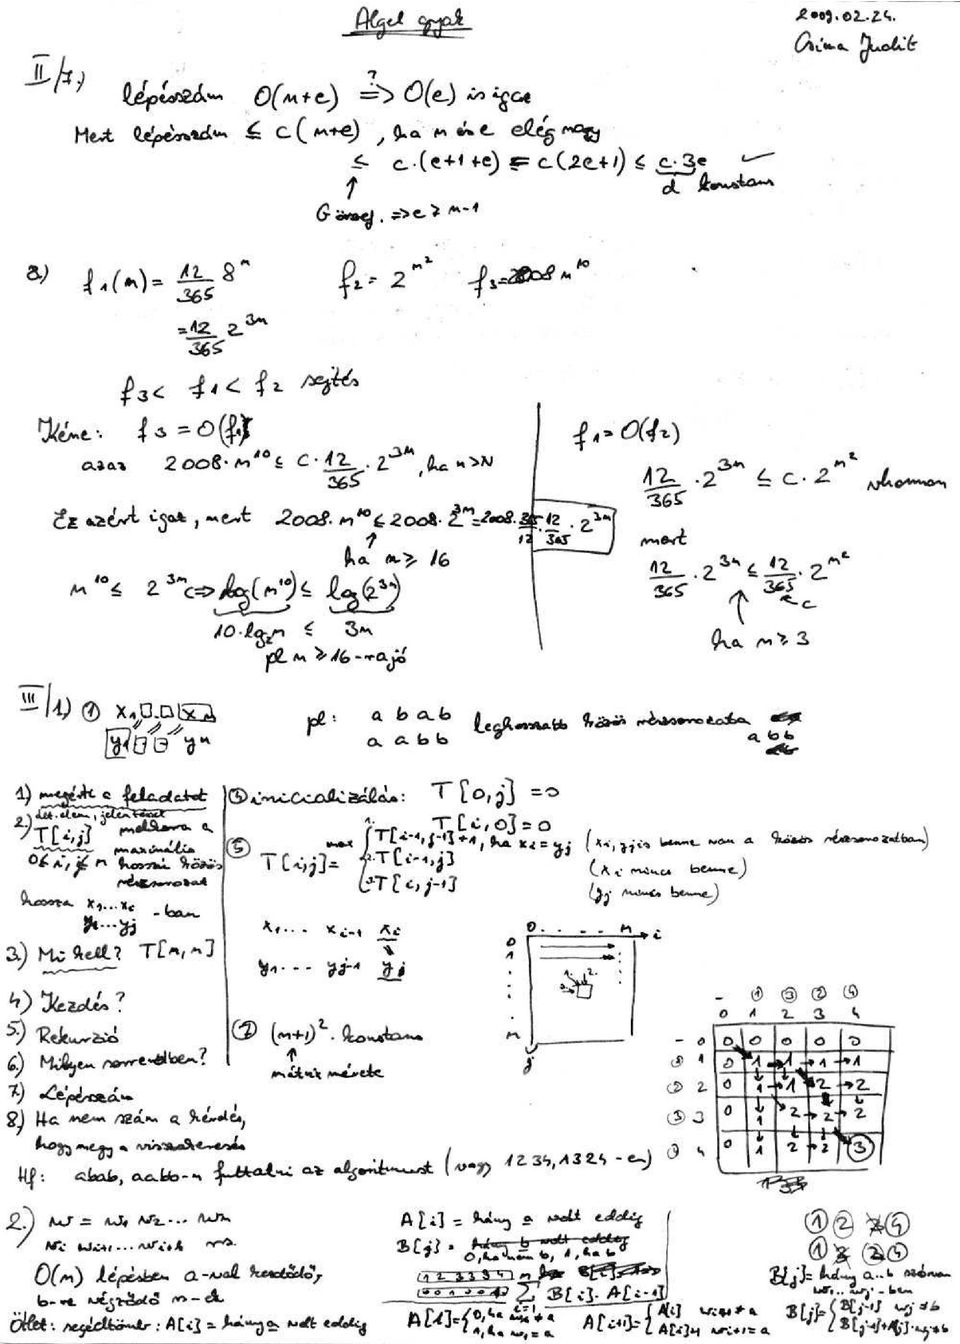 Algel gyak
2009.02.24.
Csima Judit
II/7.) lépésszám O(n+e) ?=> O(e) is igaz
Mert lépésszám ≤ c(n+e), ha n és e elég nagy
≤ c·(e+1+e) = c(2e+1) ≤ c·3e ✓
d konstans
G összef. => e ≥ n-1
8.) f1(n) = 12/365 8^n f2 = 2^(n^2) f3 = 2008 n^10
= 12/365 2^(3n)
f3 < f1 < f2 sejtés
Kéne: f3 = O(f1)
azaz 2008·n^10 ≤ c·12/365·2^(3n), ha n>N
Ez azért igaz, mert 2008·n^10 ≤ 2008·2^(3n) = 2008·365/12·12/365·2^(3n)
ha n ≥ 16
n^10 ≤ 2^(3n) <=> log(n^10) ≤ log(2^(3n))
10·log2 n ≤ 3n
pl n ≥ 16-ra jó
f1 = O(f2)
12/365·2^(3n) ≤ c·2^(n^2) vhonnan
mert
12/365·2^(3n) ≤ 12/365·2^(n^2)
c
ha n ≥ 3
III/1.) ① x1 □.□ xn
y1 □□ yn
pl: a b a b leghosszabb közös részsorozata
a a b b a b b
1) megérti a feladatot
2.) T[i,j] mekkora a
maximális
0≤i,j≤n hosszú közös
részsorozat
hossza x1...xi
y1...yj -ban
3.) Mi kell? T[n,n]
4) Kezdés?
5.) Rekurzió
6.) Milyen sorrendben?
7.) Lépésszám
8.) Ha nem szám a kérdés,
hogy megy a visszakeresés
④ inicializálás: T[0,j] = 0
T[i,0] = 0
⑤ T[i,j] = max { 1. T[i-1,j-1]+1, ha xi = yj (xi, yj is benne van a közös részsorozatban)
2. T[i-1,j] (xi nincs benne)
3. T[i,j-1] (yj nincs benne)
x1 ... xi-1 xi
y1 ... yj-1 yj
0 . . . . n i
0
1
n
j
1. 2.
3.
⑦ (n+1)^2·konstans
mátrix mérete
- ① ③ ② ④
0 1 2 3 4
- 0 0 0 0 0 0
① 1 0 1 → 1 → 1 → 1
② 2 0 1 → 1 2 → 2
③ 3 0 1 2 → 2 → 2
④ 4 0 1 2 → 2 ③
Hf: abab, aabb-n futtatni az algoritmust (vagy 1234, 1324-en)
2.) w = w1 w2 ... wn
wi wi+1 ... wi+k
O(n) lépésben a-val kezdődő,
b-re végződő
Ötlet: segédtömb: A[i] = hány a volt eddig
A[i] = hány a volt eddig
B[j] = hány b volt eddig
0, ha nem b, 1, ha b
1 2 3 3 3 4
0 0 1 0 0 1
∑ i=1 B[i]·A[i-1]
A[1] = { 0, ha w1 ≠ a
1, ha w1 = a
A[i+1] = { A[i] wi+1 ≠ a
A[i]+1 wi+1 = a
① ② ④
① ④
B[j] = hány a..b
w1 ... wj -ben
B[j] = { B[j-1] wj ≠ b
B[j-1]+A[j] wj = b